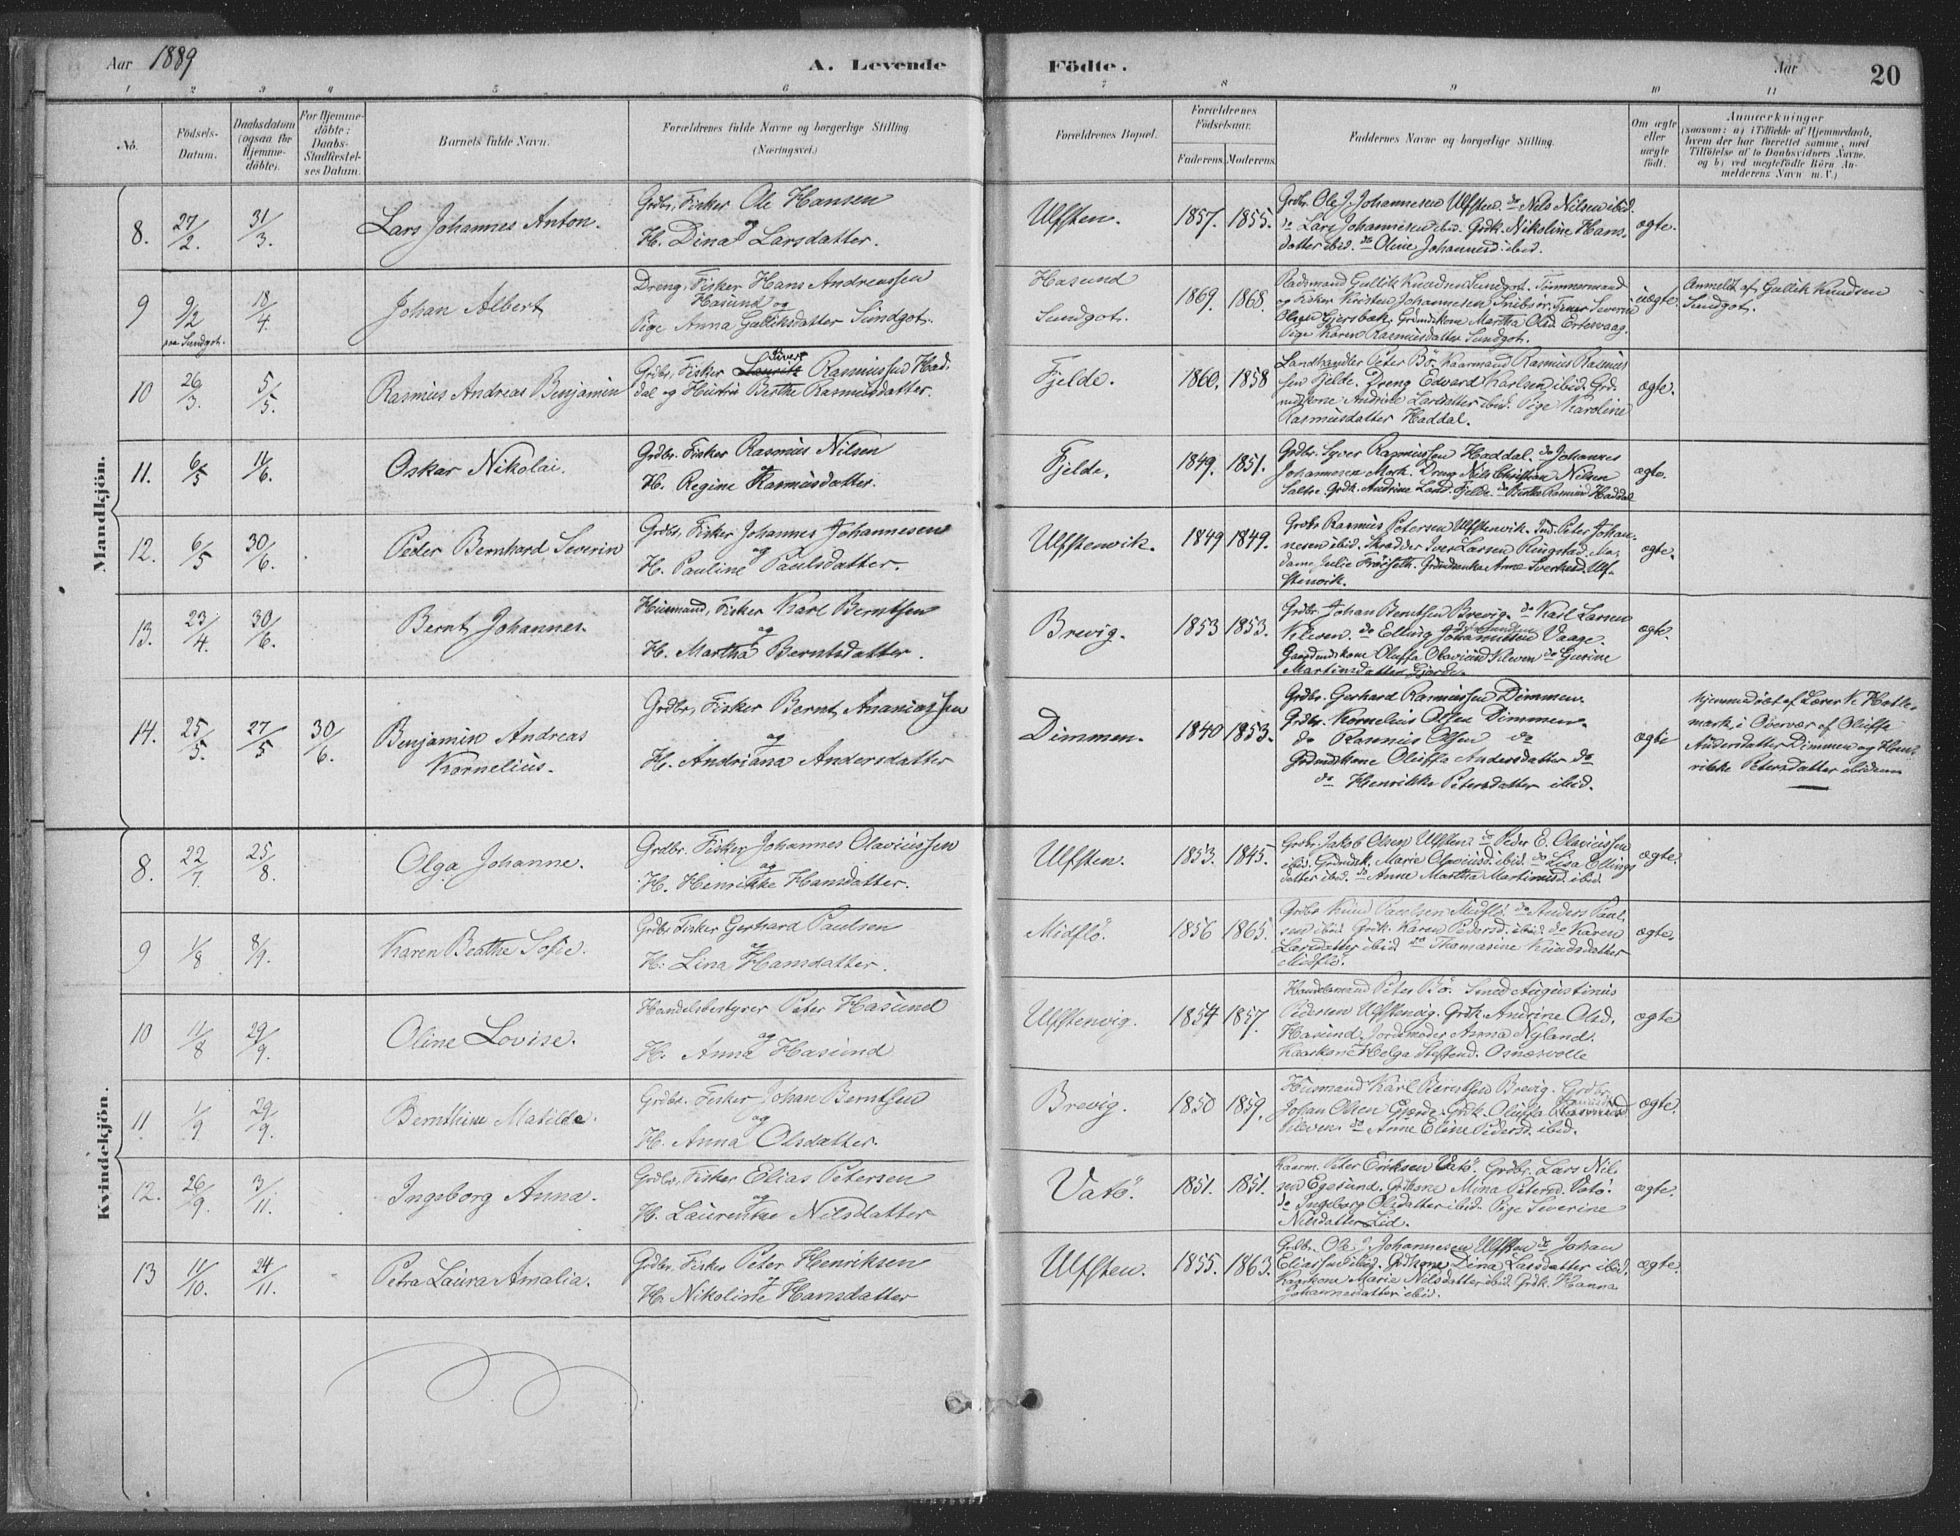 Aar 1889
A. Levende
Födte.
Aar
20
1 2 3 4 5 6 7 8 9 10 11
No.
Födsels-
Datum.
Daabsdatum
(ogsaa for
Hjemme-
döbte).
For Hjemme-
döbte:
Daabs-
Stadfæstel-
ses Datum.
Barnets fulde Navn.
Forældrenes fulde Navne og borgerlige Stilling
(Næringsvei.)
Forældrenes Bopæl.
Forældrenes
Födselsaar.
Faderens. Moderens.
Faddernes Navne og borgerlige Stilling.
Om ægte
eller
uægte
født.
Anmærkninger
(saasom: a) i Tilfælde af Hjemmedaab,
hvem der har forrettet samme, med
Tilföielse af to Daabsvidners Navne.
og b) ved uægtefödte Börn, An-
melderens Navn m. V.)
Mandkjön.
8. 27/2. 31/3. Lars Johannes Anton.
Grdbr, Fisker Ole Hansen
og
H. Dina Larsdatter.
Ulfsten. 1857. 1855.
Grdbr. Ole J. Johannesen Ulfsten. do Nils Nilsen ibid.
do Lars Johannesen ibid. Grdk. Nikoline Hans-
datter ibid. do Oline Johannesd. ibid.
ægte.
9 9/2 18/4.
paa Sundgot.
Johan Albert
Dreng, Fisker Hans Andreassen
Hasund og
Pige Anna Gulliksdatter Sundgot.
Hasund
Sundgot.
1869. 1868.
Radsmand Gullik Knudsen Sundgot. Tømmermand
og Fisker Kristen Johannesen Snibsör.
Gjersbak. Grdmdskone Martha Olsd Ertesvaag.
Pige Karen Rasmusdatter Sundgot.
uægte.
Anmeldt af Gullik Knudsen
Sundgot.
10 26/3. 5/5. Rasmus Andreas Benjamin
Siver
Grdbr, Fisker Laurits Rasmussen Had-
dal og Hustru Berthe Rasmusdatter.
Fjelde. 1860. 1858
Landhandler Peter Bö. Kaarmand Rasmus Rasmus
sen Fjelde. Dreng Edvard Karlsen ibid. Grd-
mdskone Andrikke Larsdatter ibid. Pige Karoline
Rasmusdatter Haddal.
ægte.
11. 6/5 11/6. Oskar Nikolai.
Grdbr. Fisker Rasmus Nilsen
og
H. Regine Rasmusdatter.
Fjelde. 1849. 1851.
Grdbr. Syver Rasmussen Haddal. do Johannes
Johannesen Mork. Dreng Nils Christian Nilsen
Saltre. Grdk. Andrine Land. Fjelde. do Berthe Rasmusd Haddal
ægte.
12. 6/5 30/6. Peder Bernhard Severin
Grdbr, Fisker Johannes Johannesen
og
H. Pauline Paulsdatter.
Ulfstenvik. 1849 1849.
Grdbr Rasmus Petersen Ulfstenvik. Ind. Peter Johan-
nesen ibid. Skrædder Iver Larsen Ringstad. Ma-
dame Julie Fröiseth. Grdmdenke Anne Sverksd. Ulf-
stenvik.
ægte.
13. 23/4. 30/6. Bernt Johannes.
Husmand, Fisker Karl Berntsen
og
H. Martha Berntsdatter.
Brevig. 1853 1853.
Grdbr. Johan Berntsen Brevig. do Karl Larsen
Kleven. do Elling Johannesen Vaage.
Gaardmdskone Oluffa Olaviusd Kleven do Gurine
Martinsdatter Gjerde.
ægte.
14. 25/5. 27/5 30/6. Benjamin Andreas
Kornelius.
Grdbr, Fisker Bernt Ananiassen
og
H. Andriana Andersdatter
Dimmen. 1840 1853.
Grdbr. Gerhard Rasmussen Dimmen.
Grdbr. Kornelius Olsen Dimmen.
do Rasmus Olsen do
Grdmdskone Oluffa Andersdatter do
do Henrikke Petersdatter ibid.
ægte
Hjemmedöbt af Lærer K. Hotte-
mark, i Overvær af Oluffa
Andersdatter Dimmen og Hen-
rikke Petersdatter ibidem
Kvindekjön.
8. 22/7. 25/8. Olga Johanne.
Grdbr. Fisker Johannes Olaviussen
og
H. Henrikke Hansdatter.
Ulfsten. 1853. 1845.
Grdbr. Jakob Olsen Ulfsten. do Peder E. Olaviussen
ibid. Grdmdsk. Marie Olaviusd. ibid. do Lisa Ellings
datter ibid. do Anne Martha Martinusd. ibid
ægte.
9 1/8 8/9. Karen Beathe Sofie.
Grdbr Fisker Gerhard Paulsen
og
H. Lina Hansdatter.
Midflö. 1856 1865.
Grdbr Knud Paulsen Midflö. do Anders Paul-
sen ibid Grdk. Karen Pedersd. ibid do Karen
Larsdatter ibid do Thomasine Knudsdatter
Midflö.
ægte.
10 11/8 29/9. Oline Lovise.
Handelsbestyrer Peter Hasund
og
H. Anna Hasund
Ulfstenvig. 1854 1857.
Handelsmand Peter Bö. Smed Augustinus
Pedersen Ulfstenvig. Grdk. Andrine Olsd.
Hasund. Jordemoder Anna Nyland.
Kaarkone Helga Steffend. Osnæsvolle
ægte
11 1/9 29/9. Bernthine Matilde.
Grdbr. Fisker Johan Berntsen
og
H. Anna Olsdatter.
Brevig. 1850 1859.
Husmand Karl Berntsen Brevig. Grdbr.
Johan Olsen Gjerde. Grdk. Oluffa
Kleven. do Anne Eline Pedersd. ibid.
ægte.
12. 26/9. 3/11. Ingeborg Anna.
Grdbr, Fisker Elias Petersen
og
H. Laurentze Nilsdatter
Vatö. 1851. 1851.
Kaarm. Peter Eriksen Vatö. Grdbr. Lars Nil-
sen Egesund. Grdkone Mina Petersd. Vatö.
do Ingeborg Olsdatter ibid. Pige Severine
Nilsdatter Lid.
ægte.
13 11/10. 24/11. Petra Laura Amalia.
Grdbr. Fisker Peter Henriksen
og
H. Nikoline Hansdatter
Ulfsten. 1855. 1863.
Grdbr. Ole J. Johannesen Ulfsten do Johan
Eliassen ibid. Grdkone Dina Larsdatter ibid.
Kaarkone Marie Nilsdatter ibid. Grdk. Hanna
Johannesdatter ibid.
ægte.